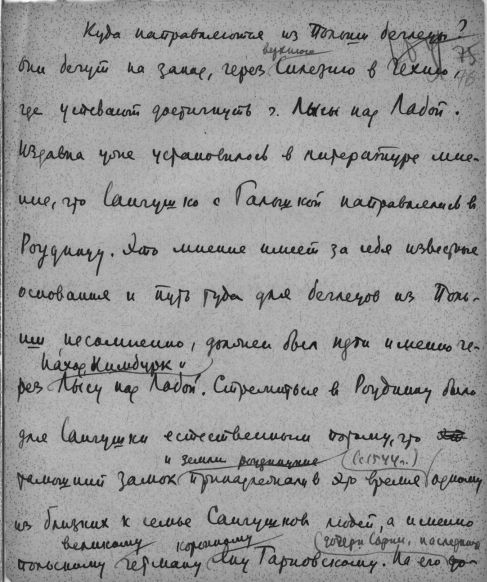 Куда направляются из Польши беглецы?
75
верхнюю
они бегут на запад, через Силезию в Чехию,
где успевают достигнуть г. Лысы над Лабой.
Издавна уже установилось в литературе мне-
ние, что Сангушко с Галышкой направлялись в
Роудницу. Это мнение имеет за себя известные
основания и путь туда для беглецов из Поль-
ши несомненно, должен был идти именно че-
Наход, Нимбурк и
рез Лысу над Лабой. Стремиться в Роудницу было
для Сангушки естественным потому, что
и земли роудницкие (с 1544 г.)
тамошний замок принадлежали в это время одному
из близких к семье Сангушков людей, а именно
великому коронному
польскому гетману Яну Тарновскому. На его